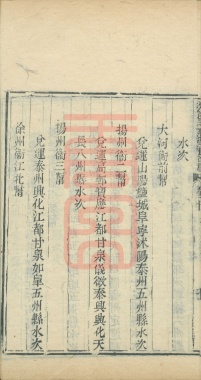 水次
大河衛前幫
兌運山陽鹽城阜寧沭陽泰州五州縣水次
揚州衛二幫
兌運高郵寶應江都甘泉儀徵泰興興化天
長八州縣水次
揚州衛三幫
兌運泰州興化江都甘泉如皋五州縣水次
徐州衛江北幫